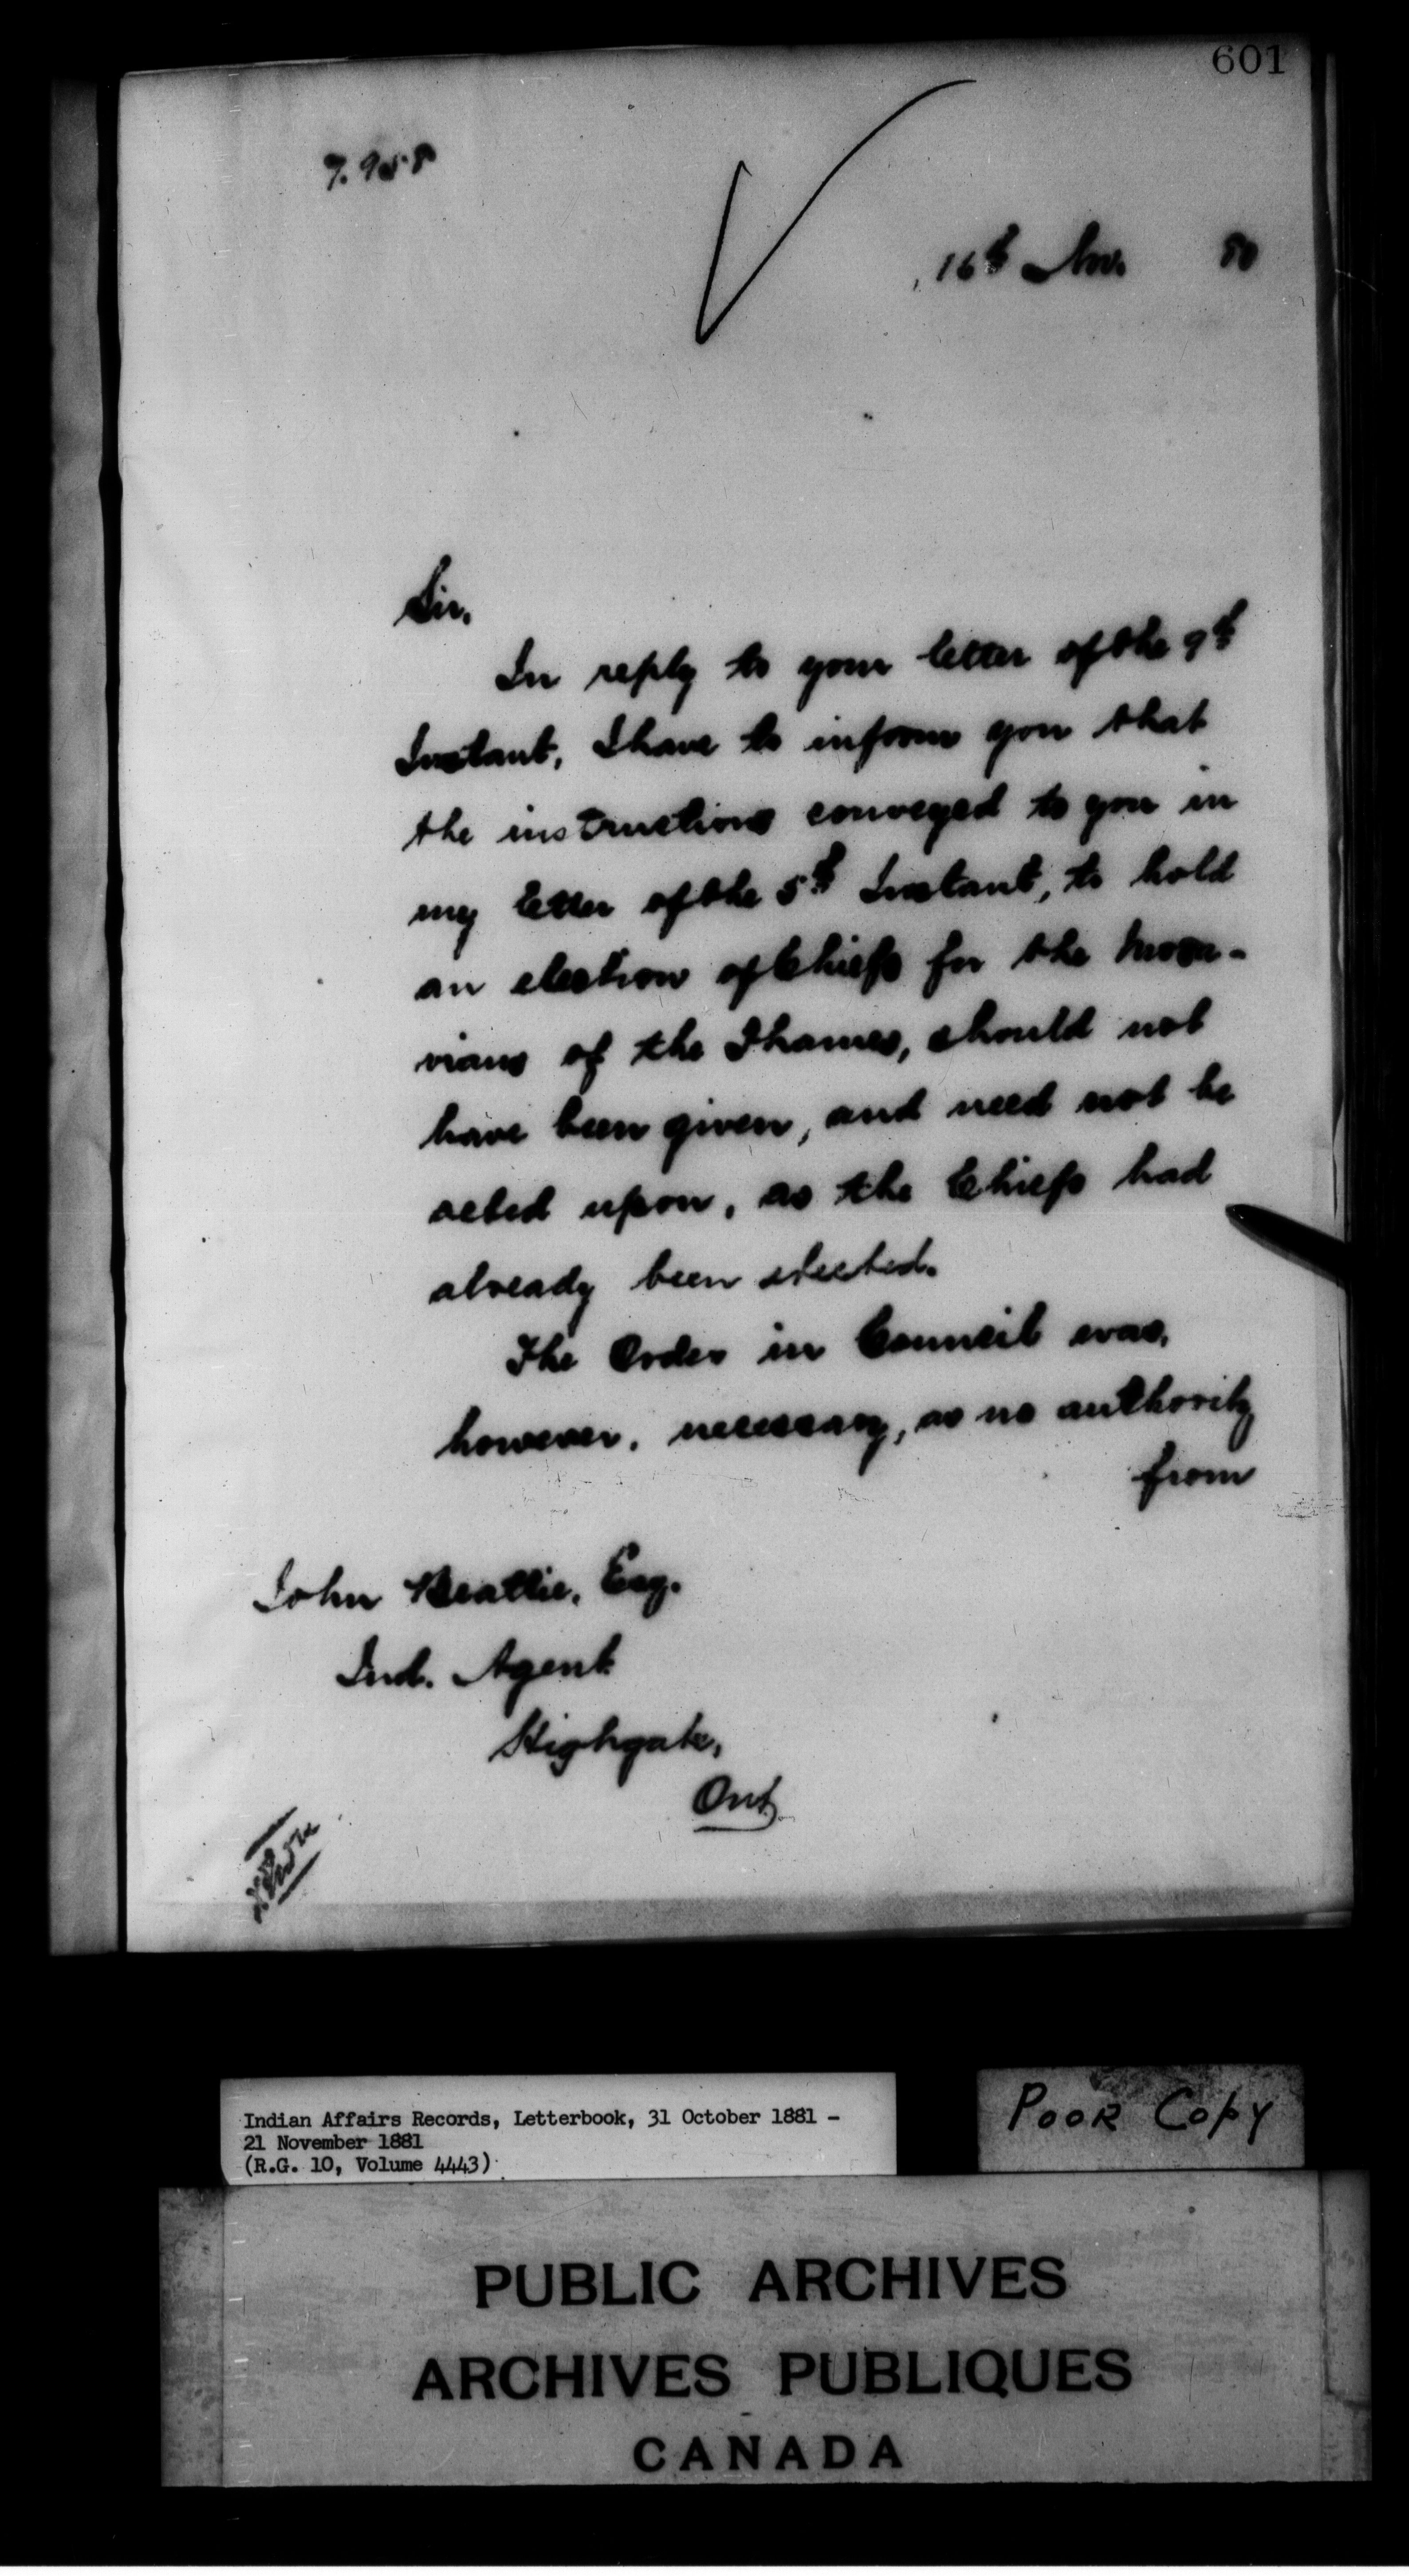 601
16th Nov.
Sir,
In reply to your letter of the 9th
Instant, I have to inform you that
the instructions conveyed to you in
my letter of the 5th Instant, to hold
an election of Chiefs for the Mora-
vians of the Thames, should not
have been given, and need not be
acted upon, as the Chiefs had
already been elected.
The Order in Council was,
however, necessary, as no authority
from
John Beattie, Esq.
Ind. Agent
Highgate,
Ont.
Indian Affairs Records, Letterbook, 31 October 1881 -
21 November 1881
(R.G. 10, Volume 4443)
POOR COPY
PUBLIC ARCHIVES
ARCHIVES PUBLIQUES
CANADA